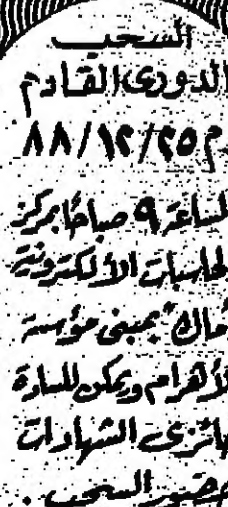 السحب
الدورى القادم
م ٨٨/١٢/٢٥
لساعة ٩ صباحًا بمركز
لحاسبات الألكترونية
"أماك" بمبنى مؤسسة
لأهرام ويمكن للسادة
حائزى الشهادات
حضور السحب .